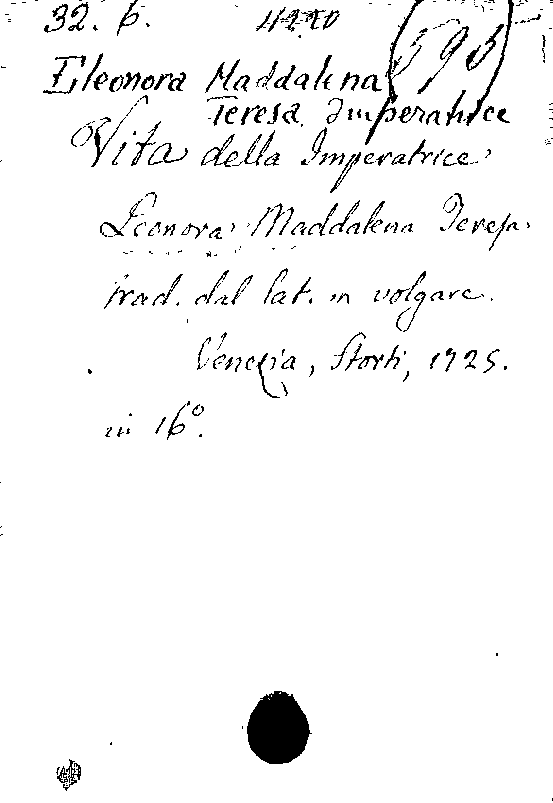 32. 6. 4220 (593)
Eleonora Maddalena
Teresa Imperatrice
Vita della Imperatrice
Leonora Maddalena Teresa
trad. dal lat. in volgare.
Venezia, Storti, 1725.
in 16º.